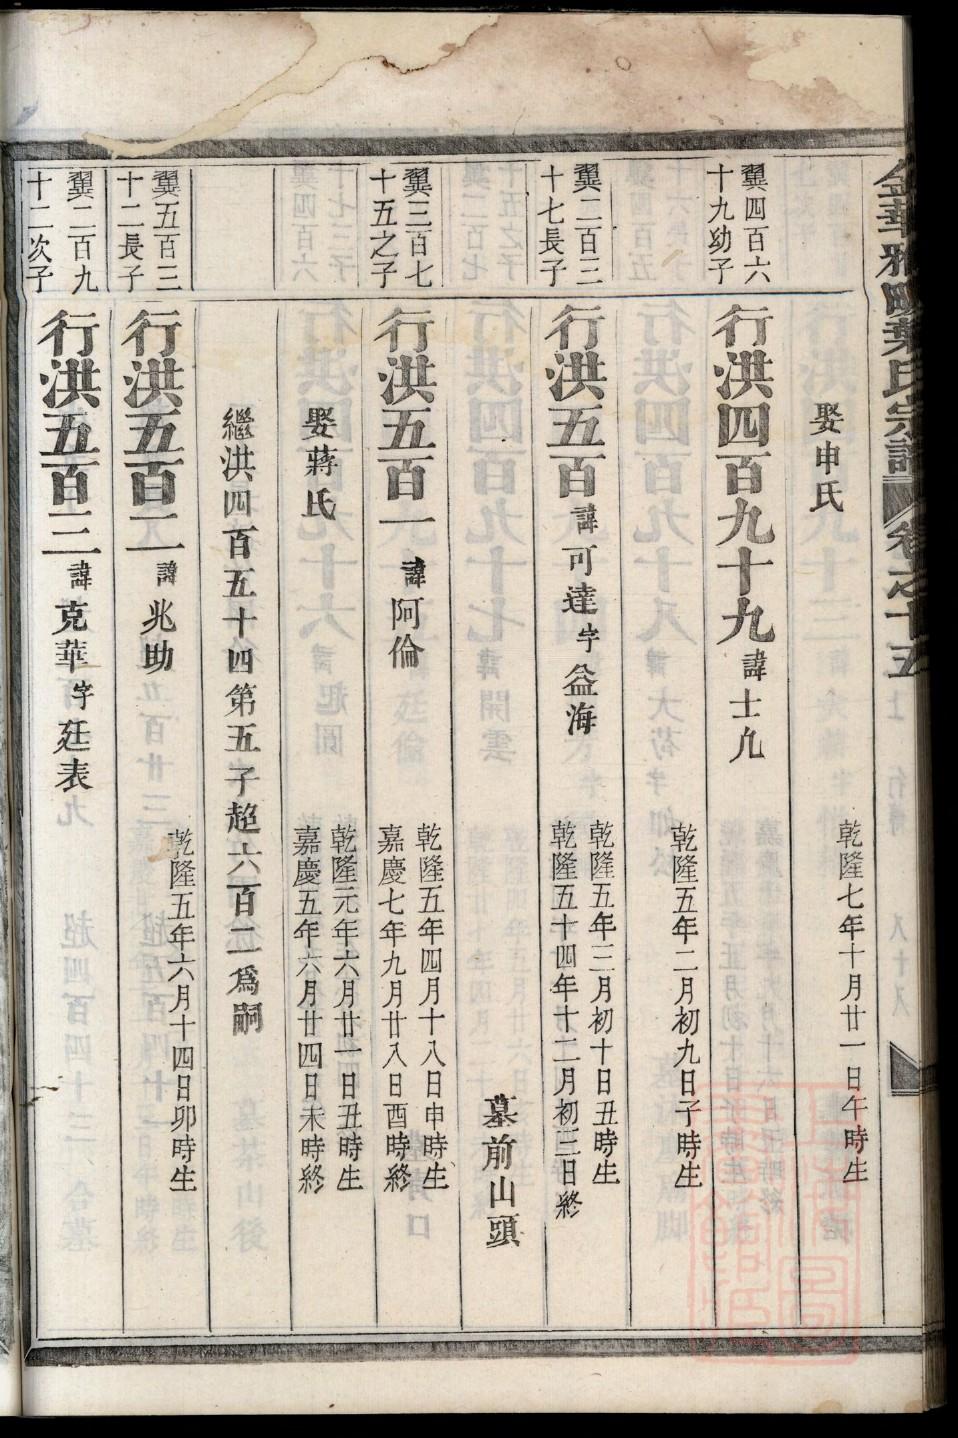 金華雅畈葉氏宗譜 卷之十五
娶申氏
乾隆七年十月廿一日午時生
翼四百六
十九幼子
行洪四百九十九 諱士凢
乾隆五年二月初九日子時生
翼二百三
十七長子
行洪五百 諱可達 字益海
乾隆五年三月初十日丑時生
乾隆五十四年十二月初三日終
墓前山頭
翼三百七
十五之子
行洪五百一 諱阿倫
乾隆五年四月十八日申時生
嘉慶七年九月廿八日酉時終
娶蔣氏
乾隆元年六月廿一日丑時生
嘉慶五年六月廿四日未時終
繼洪四百五十四第五子超六百二爲嗣
翼五百三
十二長子
行洪五百二 諱兆助
乾隆五年六月十四日卯時生
翼二百九
十二次子
行洪五百三 諱克華 字廷表